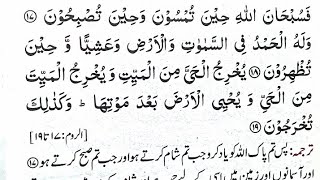 فَسُبْحَانَ اللّٰهِ حِيْنَ تُمْسُوْنَ وَحِيْنَ تُصْبِحُوْنَ ۝۱۷
وَلَهُ الْحَمْدُ فِى السَّمٰوٰتِ وَالْاَرْضِ وَعَشِيًّا وَّ حِيْنَ
تُظْهِرُوْنَ ۝۱۸ يُخْرِجُ الْحَىَّ مِنَ الْمَيِّتِ وَيُخْرِجُ الْمَيِّتَ
مِنَ الْحَىِّ وَ يُحْيِى الْاَرْضَ بَعْدَ مَوْتِهَا ؕ وَكَذٰلِكَ
تُخْرَجُوْنَ ۝۱۹
[الروم: ۱۷ تا ۱۹]
ترجمہ: پس تم پاک اللہ کو یاد کرو جب تم شام کرتے ہو اور جب تم صبح کرتے ہو ۝۱۷
اور آسمانوں اور زمین میں اسی کے لیے